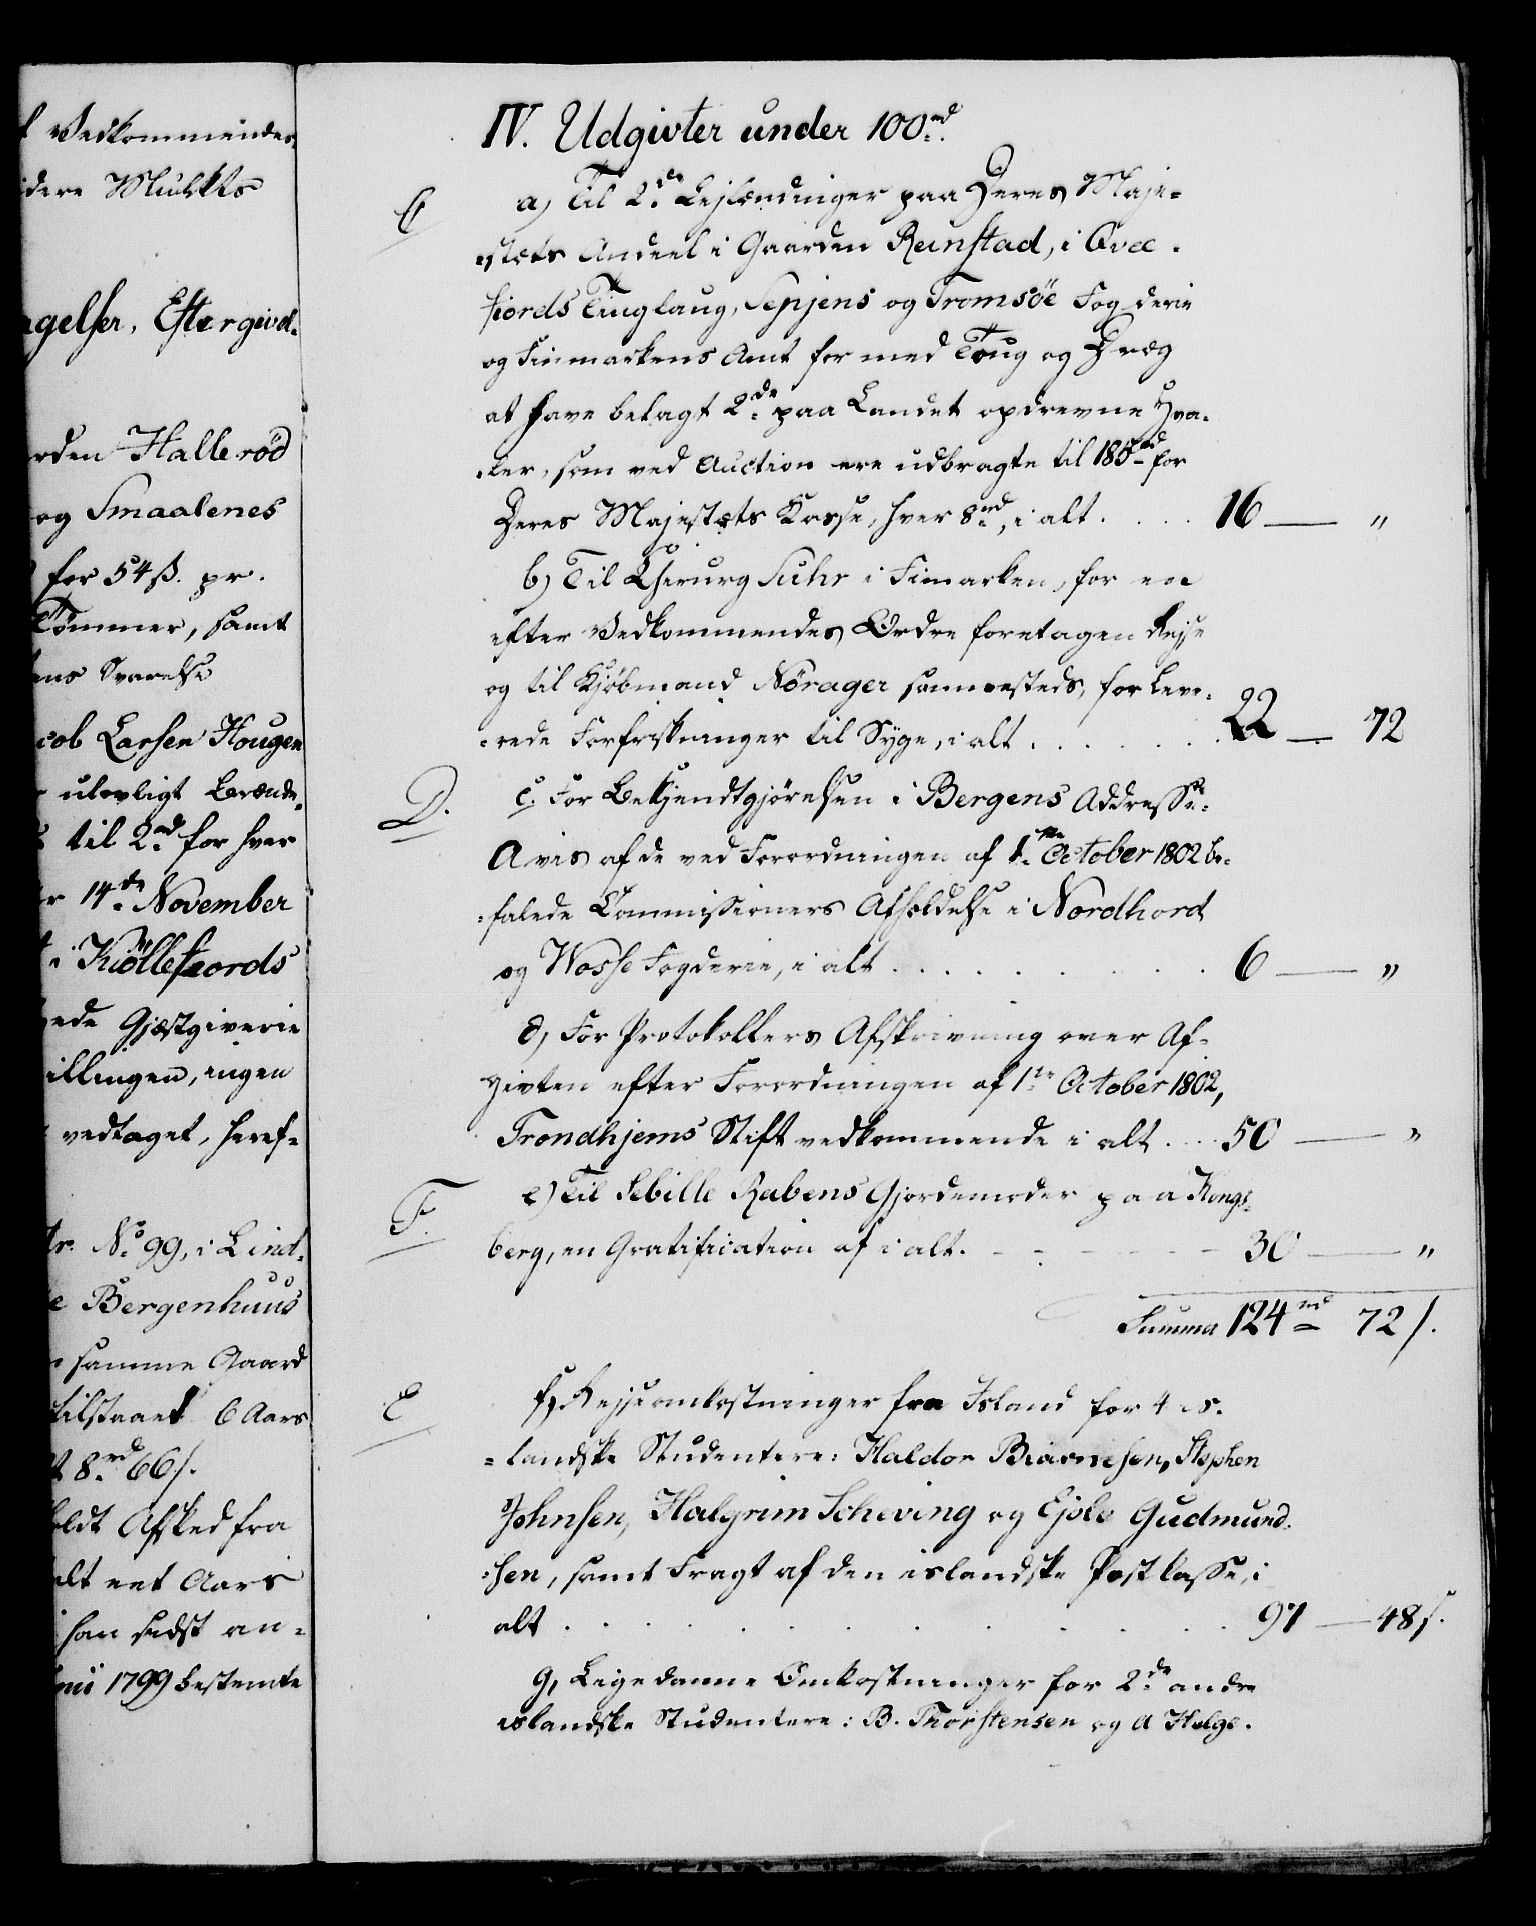 Vedkommendes
idere Mulkts
gelser, Eftergivel-
rden Hallerød
og Smaalenes
for 54 ß. pr.
Tømmer, samt
ens Svarelse
cob Larsen Hougen
ulovligt Brænde-
til 2 rd for hver
r 14de November
i Kiøllefiords
ede Gjæstgiverie
illingen, ingen
vedtaget, heref-
tr. No 99, i Lind-
e Bergenhuus
samme Gaard
tilstaaet 6 Aars
8 rd 66 s.
oldt Afsked fra
alt eet Aars
han sidst an-
nii 1799 bestemte
IV. Udgivter under 100 rd.
C
a) Til 2de Lejlændinger paa Deres Maje-
-stæts Andeel i Gaarden Reinstad, i Ovæ-
fiords Tinglaug, Senjens og Tromsöe Fogderie
og Finmarkens Amt for med Toug og Dræg
at have belagt 2de paa Landet opdrevne Hva-
ler, som ved Auction ere udbragte til 185 rd for
Deres Majestæts Kasse, hver 8 rd, i alt . . . . 16 — "
b) Til Chirurg Suhr i Finmarken, for en
efter Vedkommendes Ordre foretagen Rejse
og til Kjøbmand Nörager sammesteds, for leve-
-rede Forfriskninger til Syge, i alt . . . . . . 22 — 72
D.
c. For Bekjendtgjørelsen i Bergens Addresse-
Avis af de ved Forordningen af 1te October 1802 be-
-falede Commissioners Afholdelse i Nordhord
og Vosse Fogderie, i alt . . . . . . . . 6 — "
d) For Protokollers Afskrivning over Af-
givten efter Forordningen af 1te October 1802,
Trondhjems Stift vedkommende i alt . . . 50 — "
F.
e) Til Sebille Rabens Gjordemoder paa Kongs-
berg, en Gratification af i alt. - - - - - 30 — "
Summa 124 rd 72 s.
E
f) Rejseomkostninger fra Island for 4 is-
-landske Studentere: Haldor Biarnesen, Stephen
Johnsen, Halgrim Scheving og Ejolv Gudmund-
-sen, samt Fragt af den islandske Postkasse, i
alt . . . . . . . . . . . 97 — 48 s.
g, Ligedanne Omkostninger for 2de andre
islandske Studentere: B. Thorstensen og A Helge-